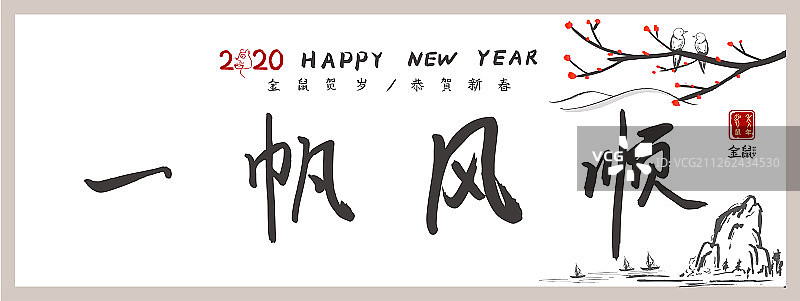 2020 HAPPY NEW YEAR
金鼠贺岁/恭賀新春
一帆风顺
鼠年
金鼠
VCG
VCG211262434530